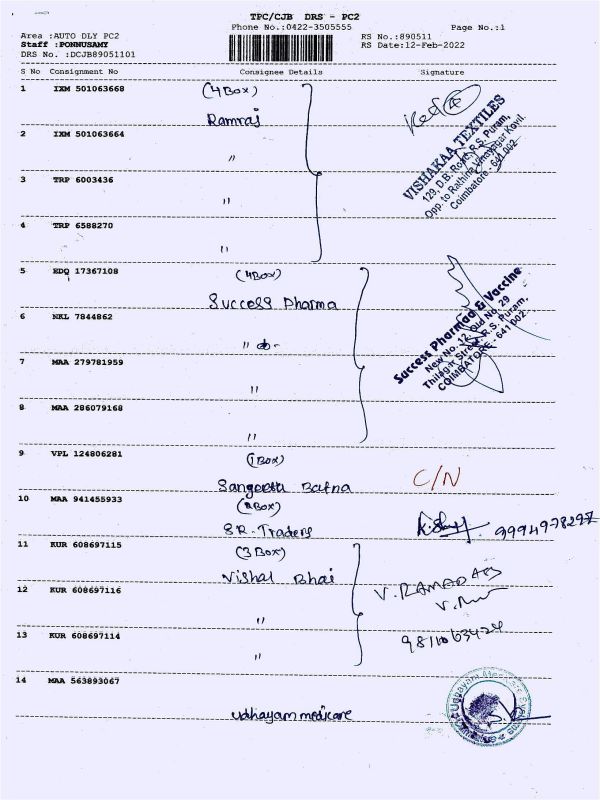 TPC/CJB DRS - PC2
Phone No.:0422-3505555 Page No.:1
Area :AUTO DLY PC2 RS No.:890511
Staff :PONNUSAMY RS Date:12-Feb-2022
DRS No. :DCJB89051101
S No Consignment No Consignee Details Signature
1 IXM 501063668 (4 Box)
Ramraj
VISHAKAA TEXTILES
129, D.B. Road, R.S. Puram,
Opp. to Rathina Vinayagar Kovil
Coimbatore - 641 002.
2 IXM 501063664
"
3 TRP 6003436
"
4 TRP 6588270
"
5 BDQ 17367108 (4 Box)
Success Pharma
Success Pharmaa & Vaccine
New No. 12, Old No. 29
Street, R.S. Puram,
COIMBATORE - 641 002.
6 NKL 7844862
" do-
7 MAA 279781959
"
8 MAA 286079168
"
9 VPL 124806281 (1 Box)
Sangeetha Bafna C/N
10 MAA 941455933 (2 Box)
S.R. Traders 9994978297
11 KUR 608697115 (3 Box)
Vishal Bhai V. RAMADAS
12 KUR 608697116
"
13 KUR 608697114
"
14 MAA 563893067
Udhayam medicare